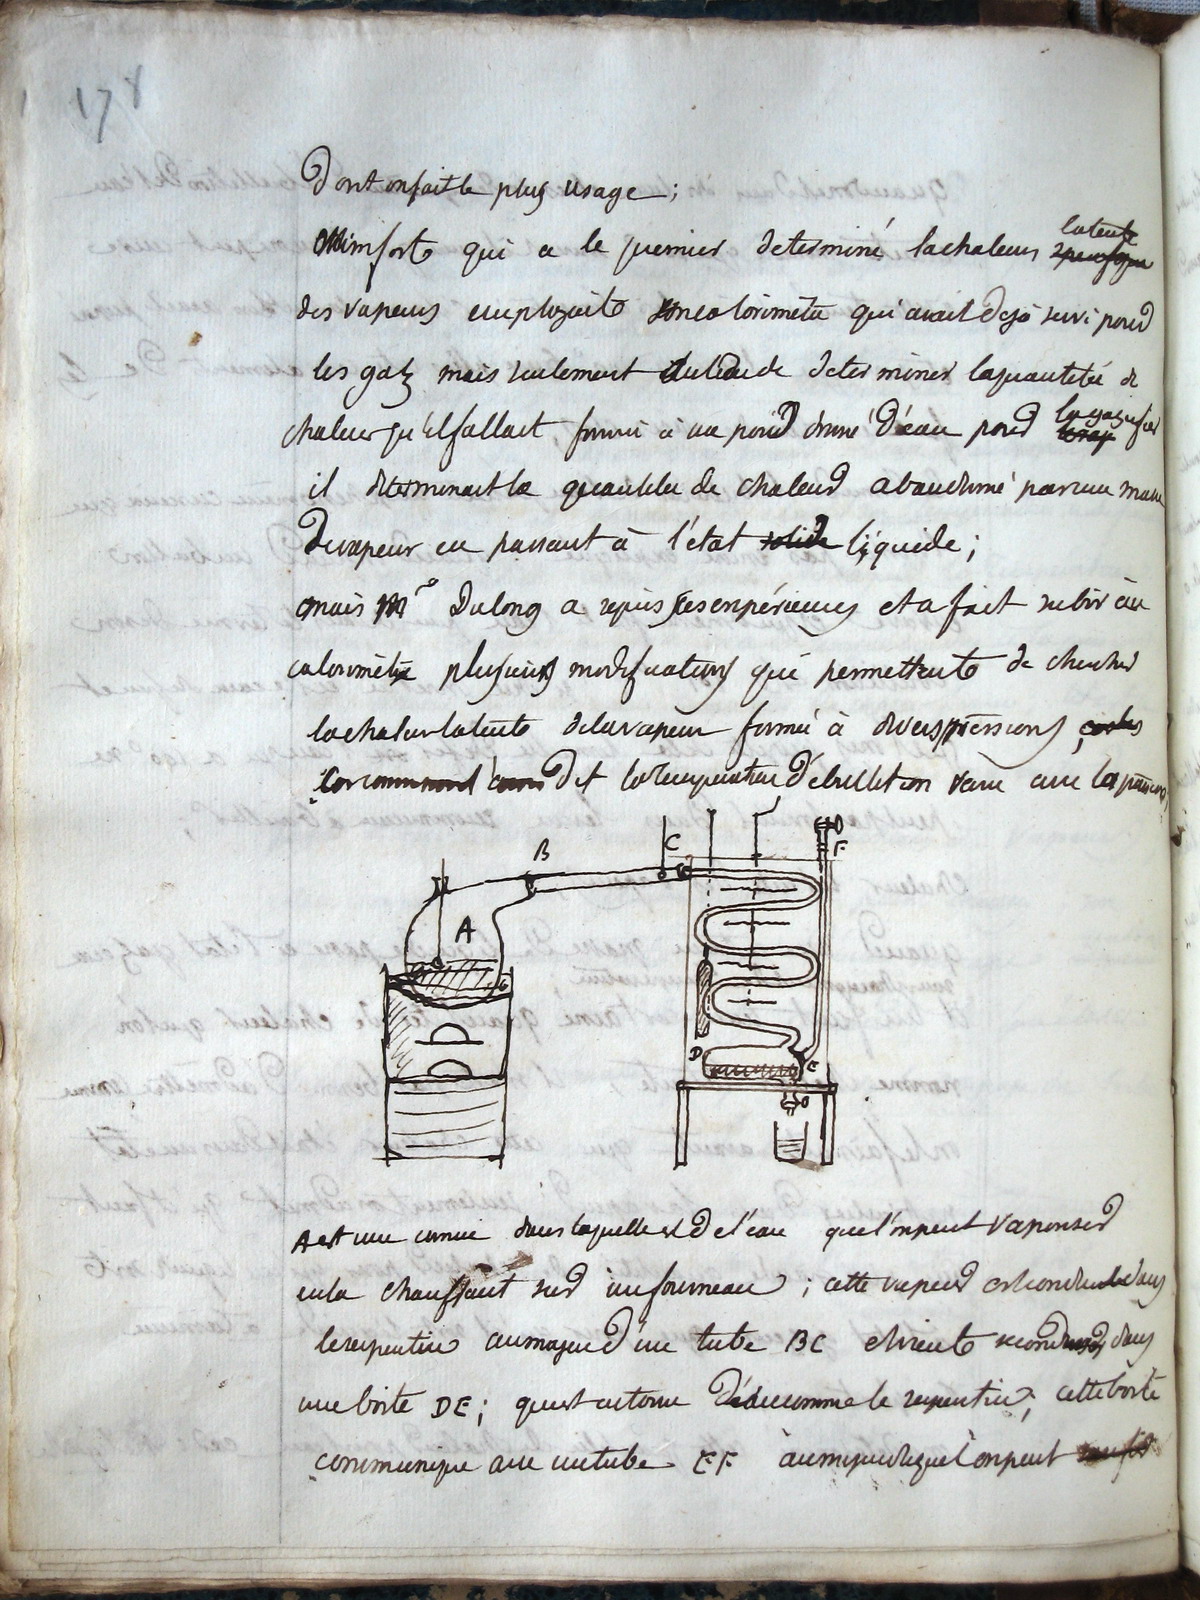 178
dont on fait le plus usage;
qui a le premier determiné la chaleur latente
des vapeurs employait son calorimetre qui avait deja servi pour
les gaz mais seulement au lieu de determiner la quantité de
chaleur qu'il fallait fournir à un poid donné d'eau pour la gazefier
il determinait la quantité de chaleur abandonné par une masse
de vapeur en passant à l'état solide liquide;
mais Mr Dulong a repris ses expériences et a fait subir au
calorimètre plusieurs modifications qui permettent de chercher
la chaleur latente de la vapeur formée à divers pressions
dit la temperature d'ébullition varie avec la pression
B C F
A
D E
A est une cornue dans laquelle est de l'eau que l'on peut vaporiser
en la chauffant sur un fourneau; cette vapeur est conduite dans
le serpentin au moyen d'un tube BC et vient se condenser dans
une boite DE; qui est entouré d'eau comme le serpentin; cette boite
communique avec un tube EF au moyen duquel on peut